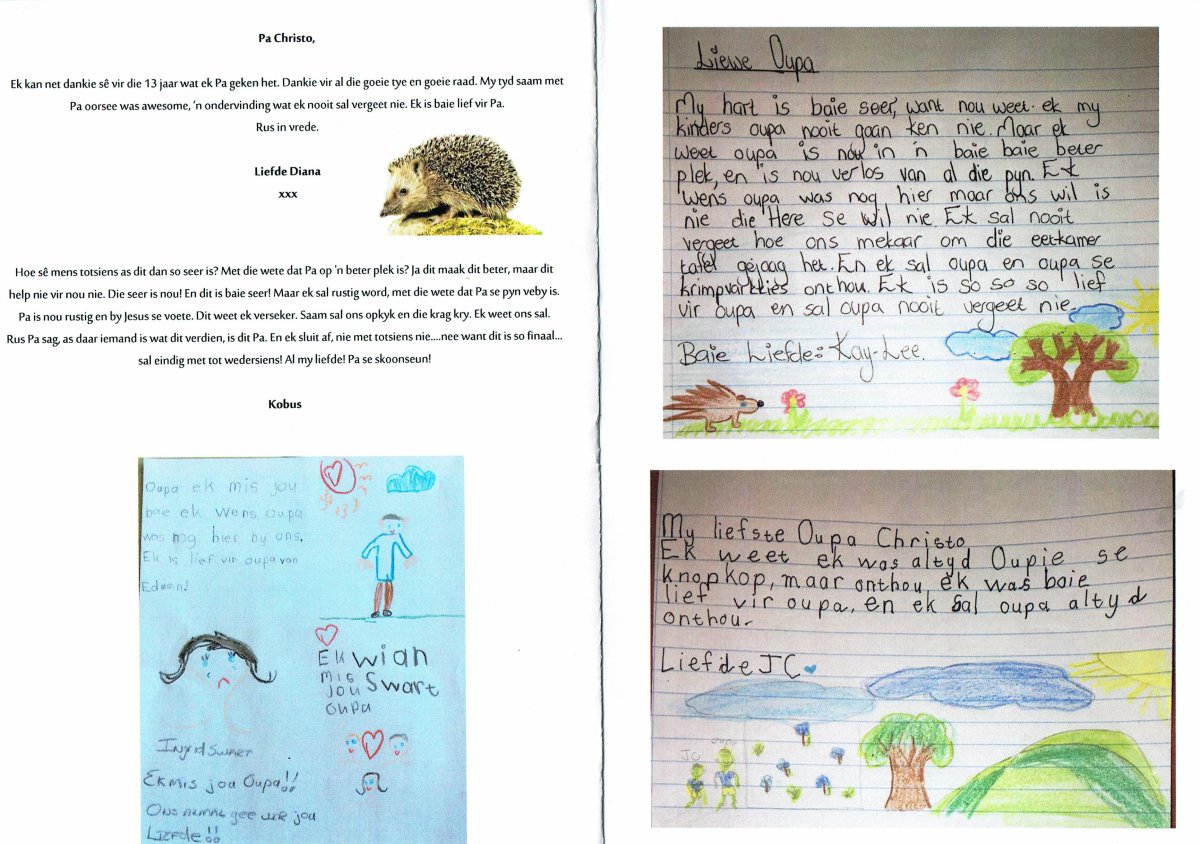 Pa Christo,
Ek kan net dankie sê vir die 13 jaar wat ek Pa geken het. Dankie vir al die goeie tye en goeie raad. My tyd saam met
Pa oorsee was awesome, 'n ondervinding wat ek nooit sal vergeet nie. Ek is baie lief vir Pa.
Rus in vrede.
Liefde Diana
xxx
Hoe sê mens totsiens as dit dan so seer is? Met die wete dat Pa op 'n beter plek is? Ja dit maak dit beter, maar dit
help nie vir nou nie. Die seer is nou! En dit is baie seer! Maar ek sal rustig word, met die wete dat Pa se pyn veby is.
Pa is nou rustig en by Jesus se voete. Dit weet ek verseker. Saam sal ons opkyk en die krag kry. Ek weet ons sal.
Rus Pa sag, as daar iemand is wat dit verdien, is dit Pa. En ek sluit af, nie met totsiens nie....nee want dit is so finaal...
sal eindig met tot wedersiens! Al my liefde! Pa se skoonseun!
Kobus
Oupa ek mis jou
baie ek wens oupa
was nog hier by ons.
Ek is lief vir oupa van
Eduan!
Ek wian
mis Swart
jou
oupa
Ek mis jou Oupa!!
Ons almal gee vir jou
Liefde!!
Liewe Oupa
My hart is baie seer, want nou weet ek my
kinders oupa nooit gaan ken nie. Maar ek
weet oupa is nou in 'n baie baie beter
plek, en is nou verlos van al die pyn. Ek
wens oupa was nog hier maar ons wil is
nie die Here se wil nie. Ek sal nooit
vergeet hoe ons mekaar om die eetkamer
tafel gejaag het. En ek sal oupa en oupa se
krimpvarkies onthou. Ek is so so so lief
vir oupa en sal oupa nooit vergeet nie.
Baie Liefde: Kay-Lee.
My liefste Oupa Christo
Ek weet ek was altyd Oupie se
knopkop, maar onthou ek was baie
lief vir oupa, en ek sal oupa altyd
onthou.
Liefde JC
JC oupa